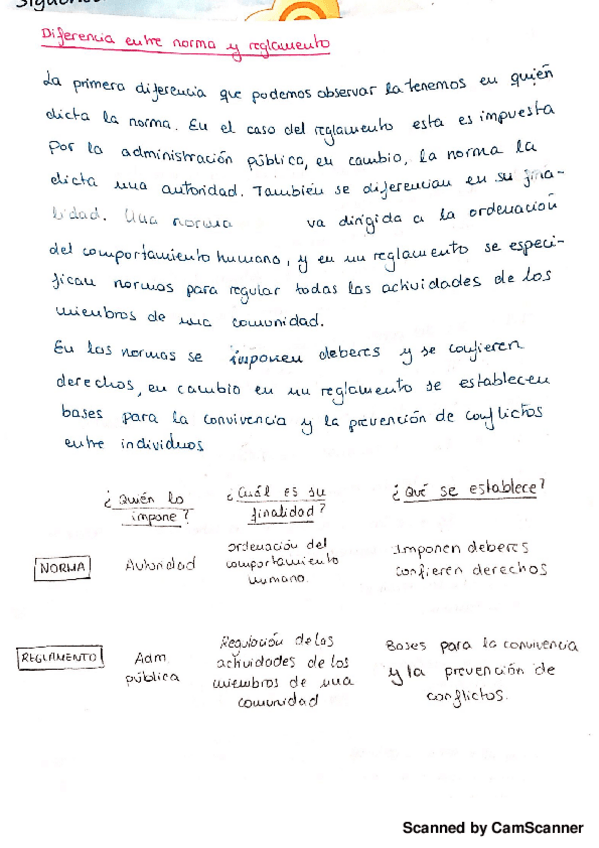 Diferencia entre norma y reglamento
La primera diferencia que podemos observar la tenemos en quién
dicta la norma. En el caso del reglamento esta es impuesta
por la administración pública, en cambio, la norma la
dicta una autoridad. También se diferencian en su fina-
lidad. Una norma va dirigida a la ordenación
del comportamiento humano, y en un reglamento se especi-
fican normas para regular todas las actividades de los
miembros de una comunidad.
En las normas se imponen deberes y se confieren
derechos, en cambio en un reglamento se establecen
bases para la convivencia y la prevención de conflictos
entre individuos
¿Quién lo impone?
¿Cuál es su finalidad?
¿Qué se establece?
NORMA
Autoridad
Ordenación del
comportamiento
humano.
Imponen deberes
confieren derechos
REGLAMENTO
Adm.
pública
Regulación de las
actividades de los
miembros de una
comunidad
Bases para la convivencia
y la prevención de
conflictos.
Scanned by CamScanner